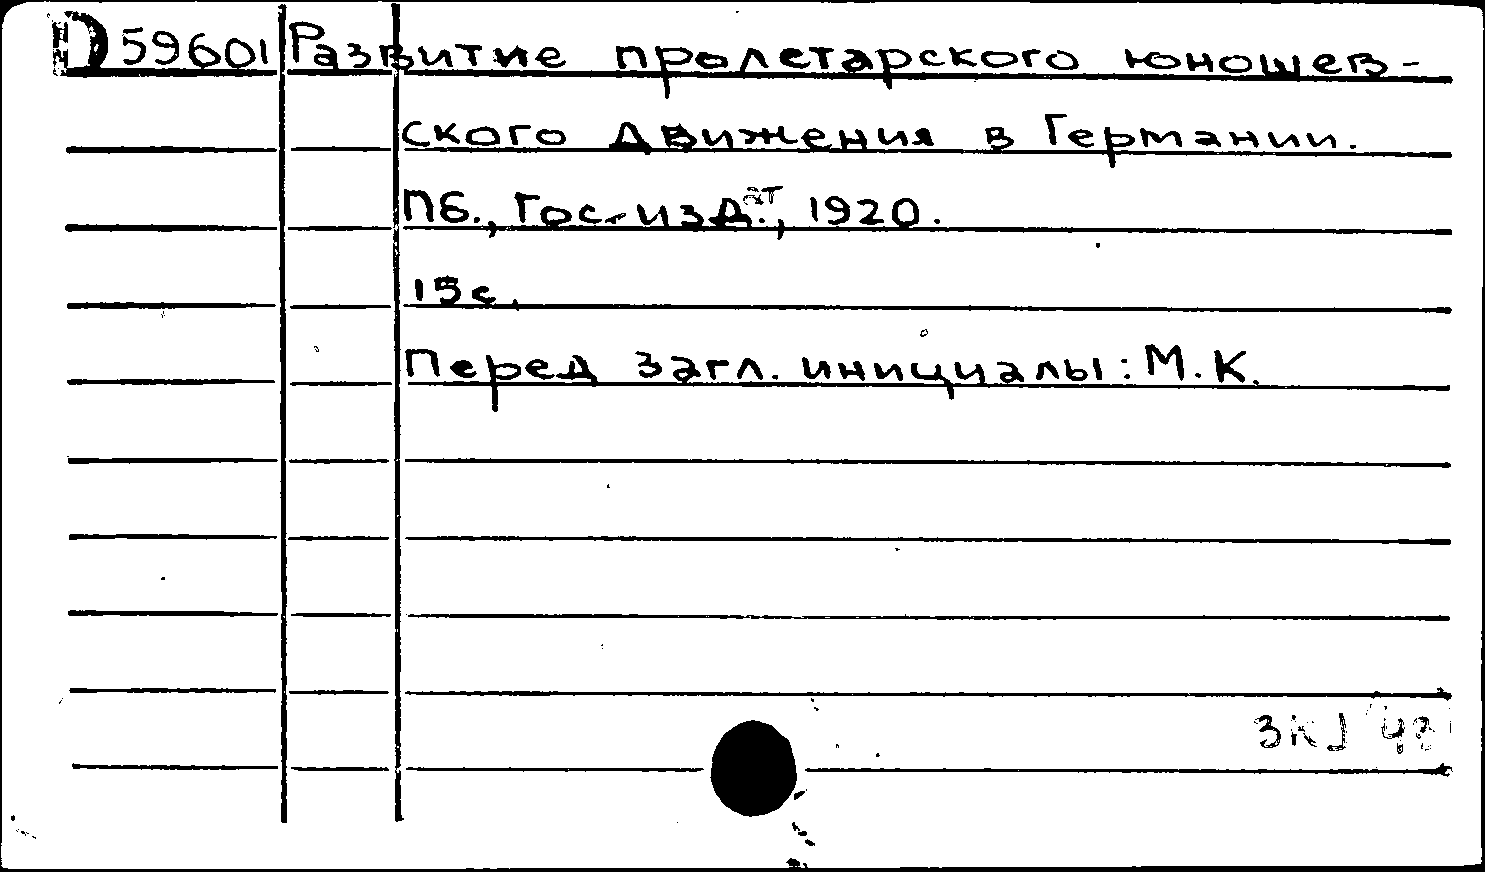 D 59601 Развитие пролетарского юношев-
ского движения в Германии.
Пб., Гос. издат., 1920.
15 с.
Перед загл. инициалы: М. К.